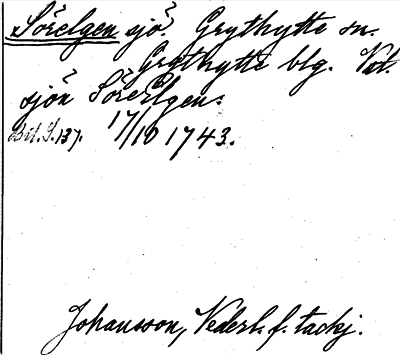 Sörelgen sjö. Grythytte sn.
Grythytte blg. Vat.
sjön SörElgen.
Bil. S. 137. 17/10 1743.
Johansson, Nederl. f. tackj.